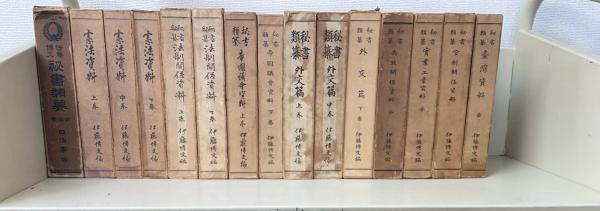 秘書類纂
憲法資料 上卷 伊藤博文編
憲法資料 中卷 伊藤博文編
憲法資料 下卷 伊藤博文編
秘書類纂 法制關係資料 上卷 伊藤博文編
秘書類纂 法制關係資料 下卷 伊藤博文編
秘書類纂 帝國議會資料 上卷 伊藤博文編
秘書類纂 帝國議會資料 下卷 伊藤博文編
秘書類纂 外交篇 上卷 伊藤博文編
秘書類纂 外交篇 中卷 伊藤博文編
秘書類纂 外交篇 下卷 伊藤博文編
秘書類纂 伊藤博文編
秘書類纂 實業工業資料 全 伊藤博文編
秘書類纂 官制關係資料 全 伊藤博文編
秘書類纂 臺灣資料 全 伊藤博文編